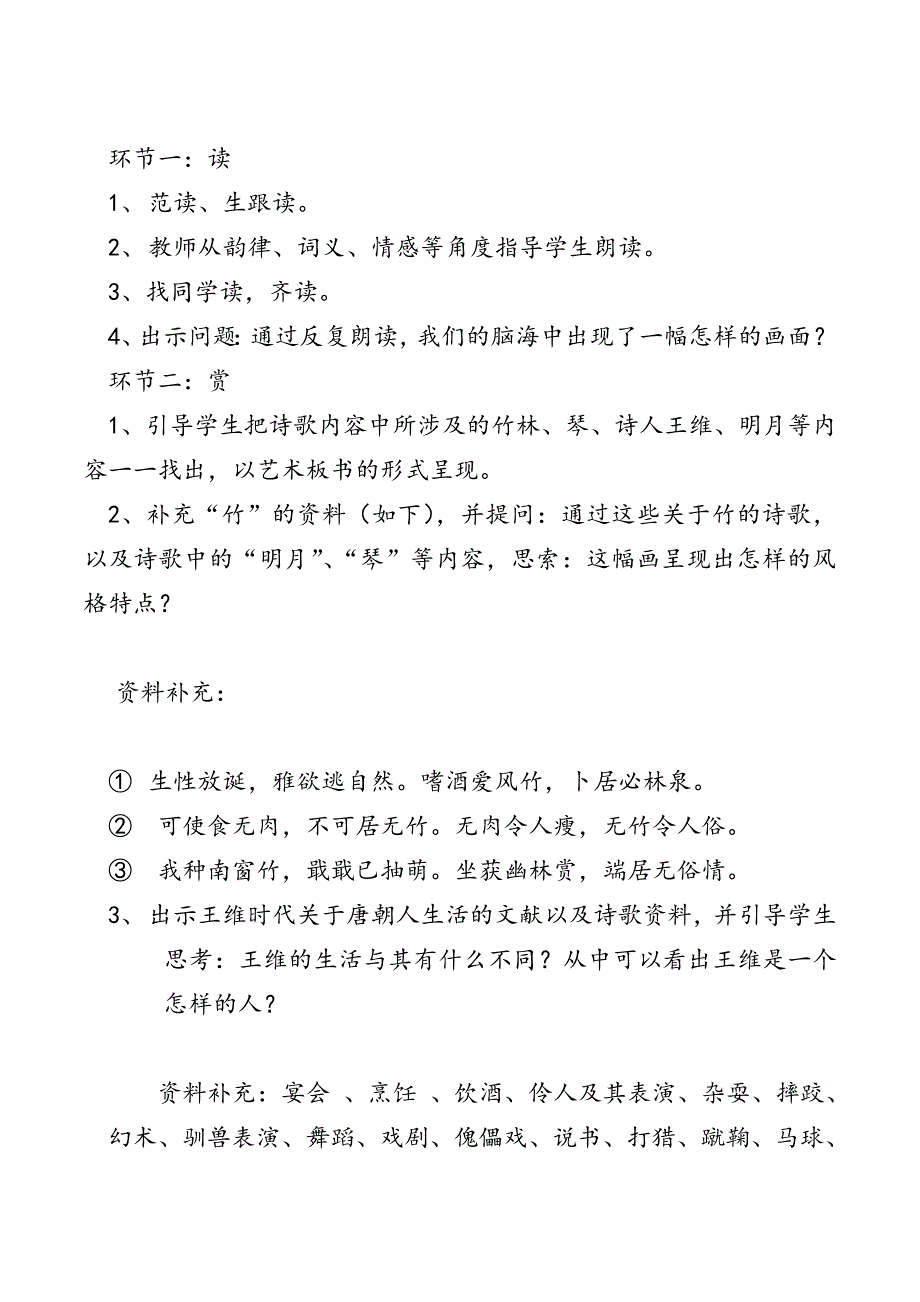 环节一：读
1、 范读、生跟读。
2、 教师从韵律、词义、情感等角度指导学生朗读。
3、找同学读，齐读。
4、出示问题：通过反复朗读，我们的脑海中出现了一幅怎样的画面？
环节二：赏
1、引导学生把诗歌内容中所涉及的竹林、琴、诗人王维、明月等内
容一一找出，以艺术板书的形式呈现。
2、补充“竹”的资料（如下），并提问：通过这些关于竹的诗歌，
以及诗歌中的“明月”、“琴”等内容，思索：这幅画呈现出怎样的风
格特点？
资料补充：
① 生性放诞，雅欲逃自然。嗜酒爱风竹，卜居必林泉。
② 可使食无肉，不可居无竹。无肉令人瘦，无竹令人俗。
③ 我种南窗竹，戢戢已抽萌。坐获幽林赏，端居无俗情。
3、 出示王维时代关于唐朝人生活的文献以及诗歌资料，并引导学生
思考：王维的生活与其有什么不同？从中可以看出王维是一个
怎样的人？
资料补充：宴会 、烹饪 、饮酒、伶人及其表演、杂耍、摔跤、
幻术、驯兽表演、舞蹈、戏剧、傀儡戏、说书、打猎、蹴鞠、马球、